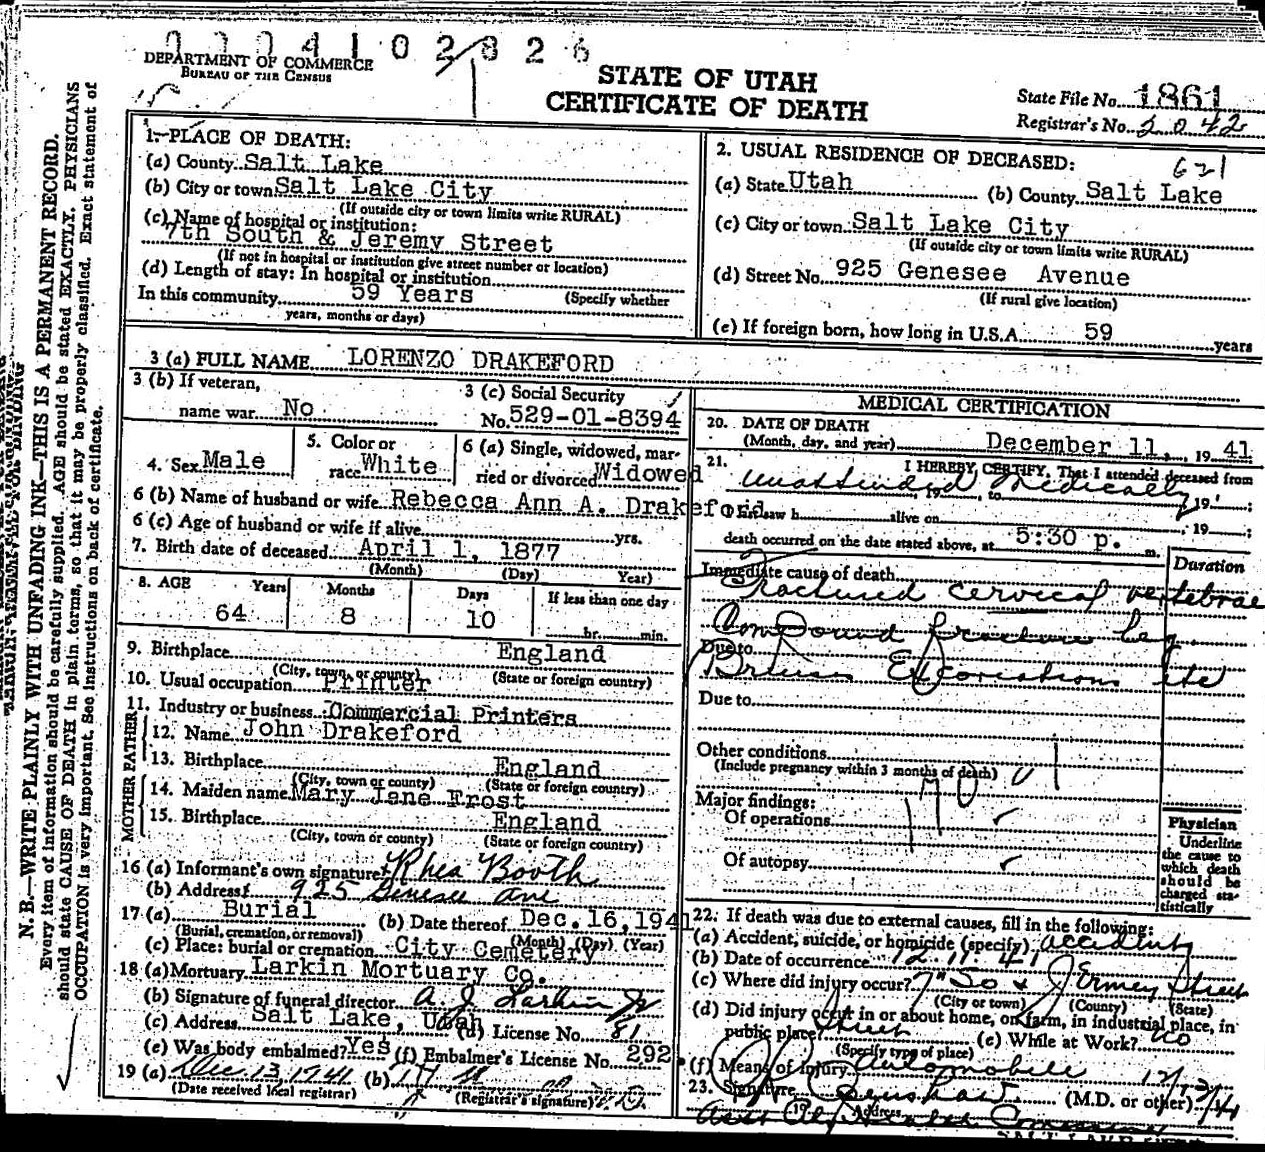 0 0 0 4 1 0 2 8 2 6
DEPARTMENT OF COMMERCE
BUREAU OF THE CENSUS
STATE OF UTAH
CERTIFICATE OF DEATH
State File No. 1861
Registrar's No. 2042
N. B.—WRITE PLAINLY WITH UNFADING INK—THIS IS A PERMANENT RECORD.
Every item of information should be carefully supplied. AGE should be stated EXACTLY. PHYSICIANS
should state CAUSE OF DEATH in plain terms, so that it may be properly classified. Exact statement of
OCCUPATION is very important. See instructions on back of certificate.
1. PLACE OF DEATH:
(a) County Salt Lake
(b) City or town Salt Lake City
(If outside city or town limits write RURAL)
(c) Name of hospital or institution:
7th South & Jeremy Street
(If not in hospital or institution give street number or location)
(d) Length of stay: In hospital or institution
In this community 59 Years (Specify whether
years, months or days)
2. USUAL RESIDENCE OF DECEASED: 621
(a) State Utah (b) County Salt Lake
(c) City or town Salt Lake City
(If outside city or town limits write RURAL)
(d) Street No. 925 Genesee Avenue
(If rural give location)
(e) If foreign born, how long in U.S.A. 59 years
3 (a) FULL NAME LORENZO DRAKEFORD
3 (b) If veteran,
name war No
3 (c) Social Security
No. 529-01-8394
4. Sex Male
5. Color or
race White
6 (a) Single, widowed, mar-
ried or divorced Widowed
6 (b) Name of husband or wife Rebecca Ann A. Drakeford
6 (c) Age of husband or wife if alive yrs.
7. Birth date of deceased April 1, 1877
(Month) (Day) Year)
8. AGE Years Months Days If less than one day
64 8 10 hr. min.
9. Birthplace England
(City, town, or county) (State or foreign country)
10. Usual occupation Printer
11. Industry or business Commercial Printers
FATHER
12. Name John Drakeford
13. Birthplace England
(City, town or county) (State or foreign country)
MOTHER
14. Maiden name Mary Jane Frost
15. Birthplace England
(City, town or county) (State or foreign country)
16 (a) Informant's own signature Rhea Booth
(b) Address 925 Genesee Ave
17 (a) Burial (b) Date thereof Dec. 16, 1941
(Burial, cremation, or removal) (Month) (Day) (Year)
(c) Place: burial or cremation City Cemetery
18 (a) Mortuary Larkin Mortuary Co.
(b) Signature of funeral director A. J. Larkin Jr
(c) Address Salt Lake, Utah (d) License No. 81
(e) Was body embalmed? Yes (f) Embalmer's License No. 292
19 (a) Dec. 13 1941 (b)
(Date received local registrar) (Registrar's signature)
MEDICAL CERTIFICATION
20. DATE OF DEATH
(Month, day, and year) December 11, 19 41
21. I HEREBY CERTIFY, That I attended deceased from
unattended medically
, 19 , to , 19 ;
I last saw h alive on , 19 ;
death occurred on the date stated above, at 5:30 p. m.
Immediate cause of death Duration
Fractured cervical vertebrae
Compound fracture leg
Due to
Bruises Excoriations etc
Due to
Other conditions
(Include pregnancy within 3 months of death)
170
Major findings:
Of operations
Of autopsy
Physician
Underline
the cause to
which death
should be
charged sta-
tistically
22. If death was due to external causes, fill in the following:
(a) Accident, suicide, or homicide (specify) accident
(b) Date of occurrence 12-11-41
(c) Where did injury occur? 7th So & Jermey Street
(City or town) (County) (State)
(d) Did injury occur in or about home, on farm, in industrial place, in
public place? Street (e) While at Work? no
(Specify type of place)
(f) Means of Injury Automobile 12/13/41
23. Signature (M.D. or other)
Address